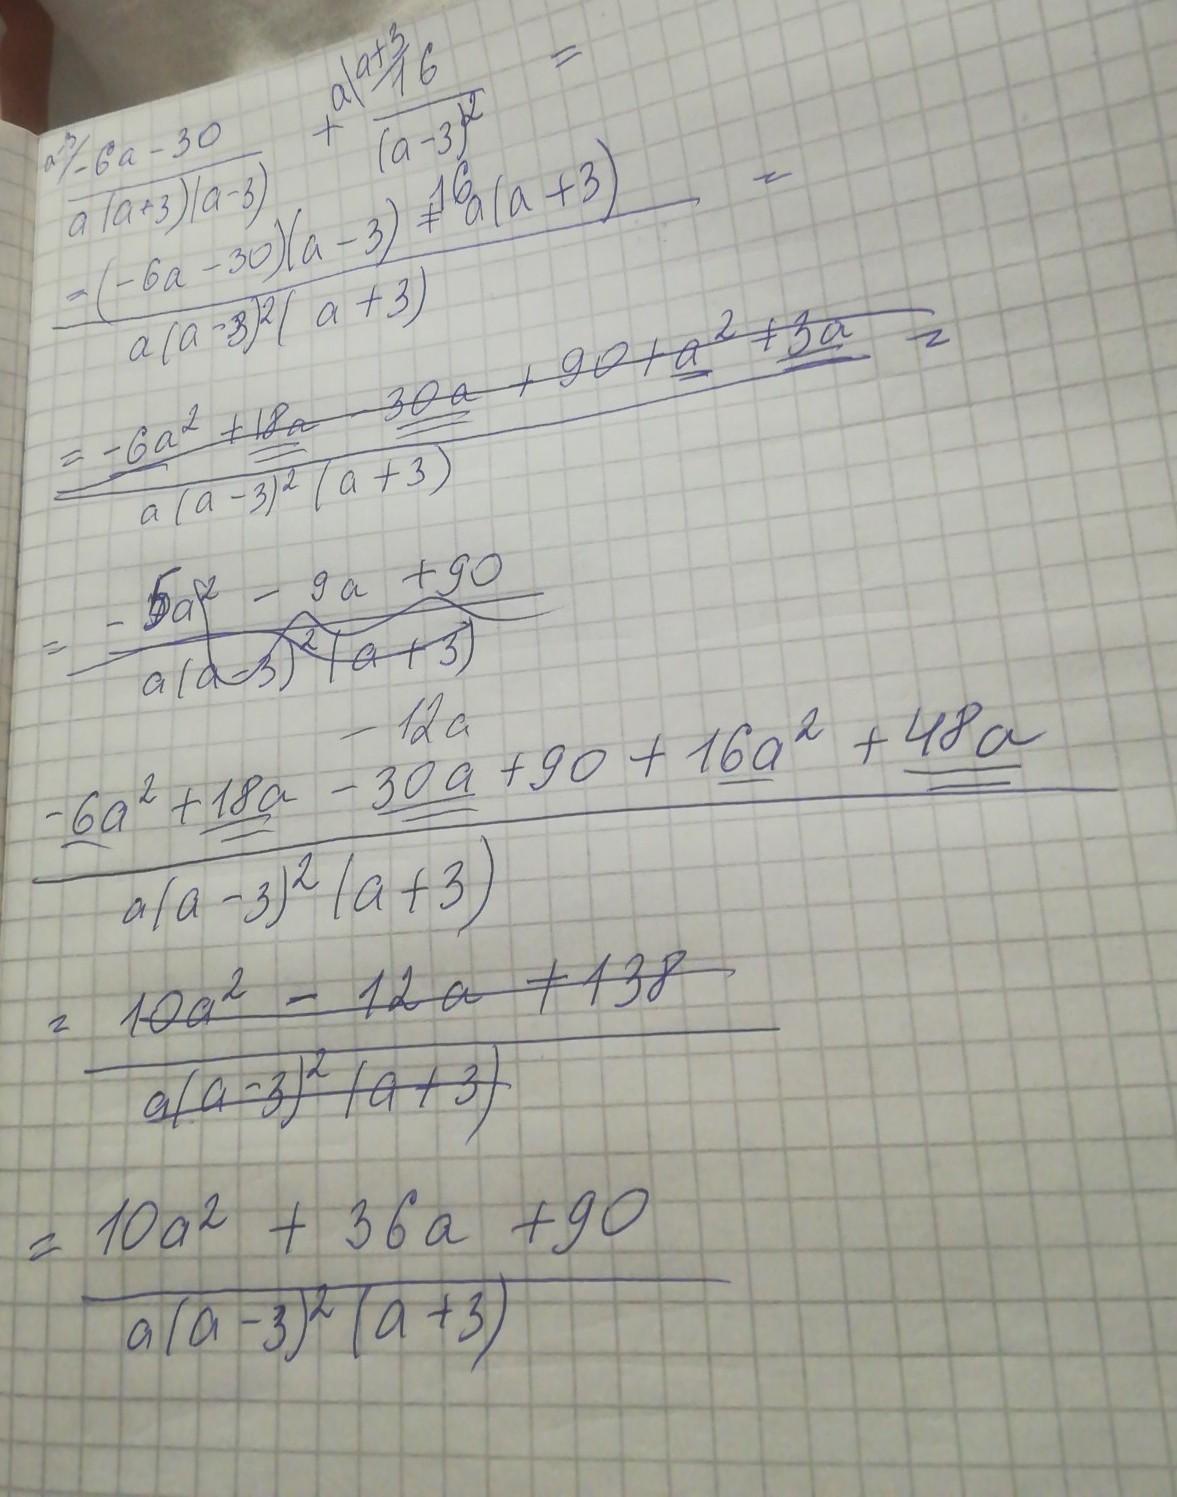 a-3/ -6a-30 / a(a+3)(a-3) + a(a+3/ 16 / (a-3)² =
= (-6a-30)(a-3) + 16a(a+3) / a(a-3)²(a+3) =
= -6a² + 18a - 30a + 90 + a² + 3a / a(a-3)²(a+3) =
= -5a² - 9a + 90 / a(a-3)²(a+3)
-12a
-6a² + 18a - 30a + 90 + 16a² + 48a / a(a-3)²(a+3)
= 10a² - 12a + 138 / a(a-3)²(a+3)
= 10a² + 36a + 90 / a(a-3)²(a+3)